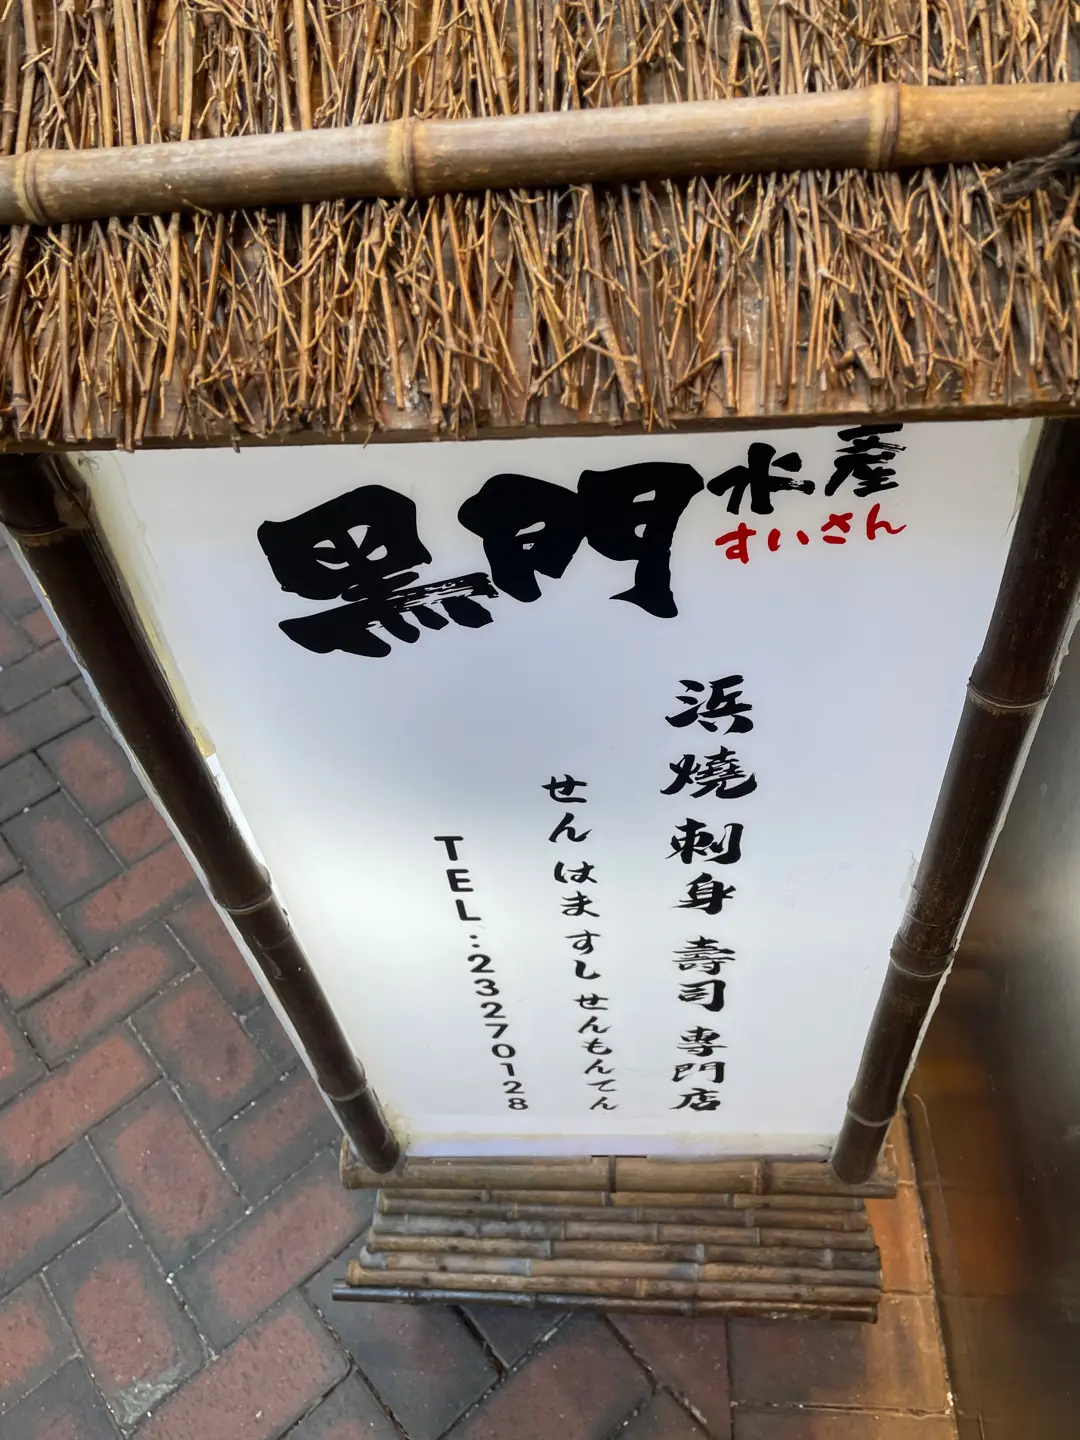 黑門水産
すいさん
浜燒 刺身 壽司 専門店
せんはますしせんもんてん
TEL:23270128